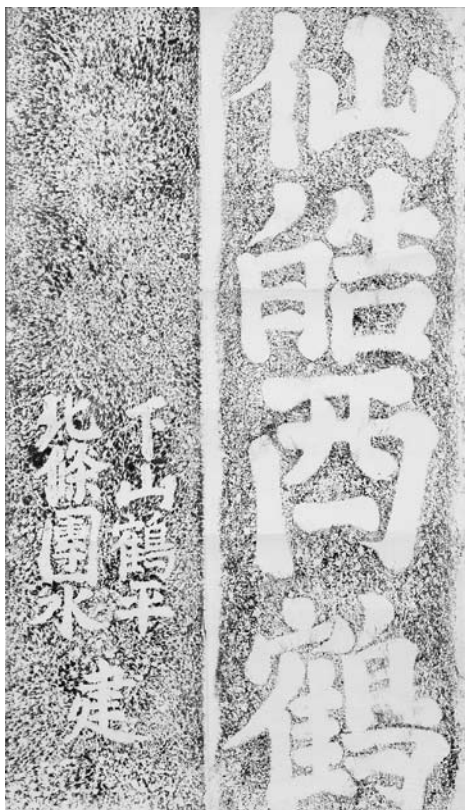 仙皓西鶴
下山鶴平
北條團水
建